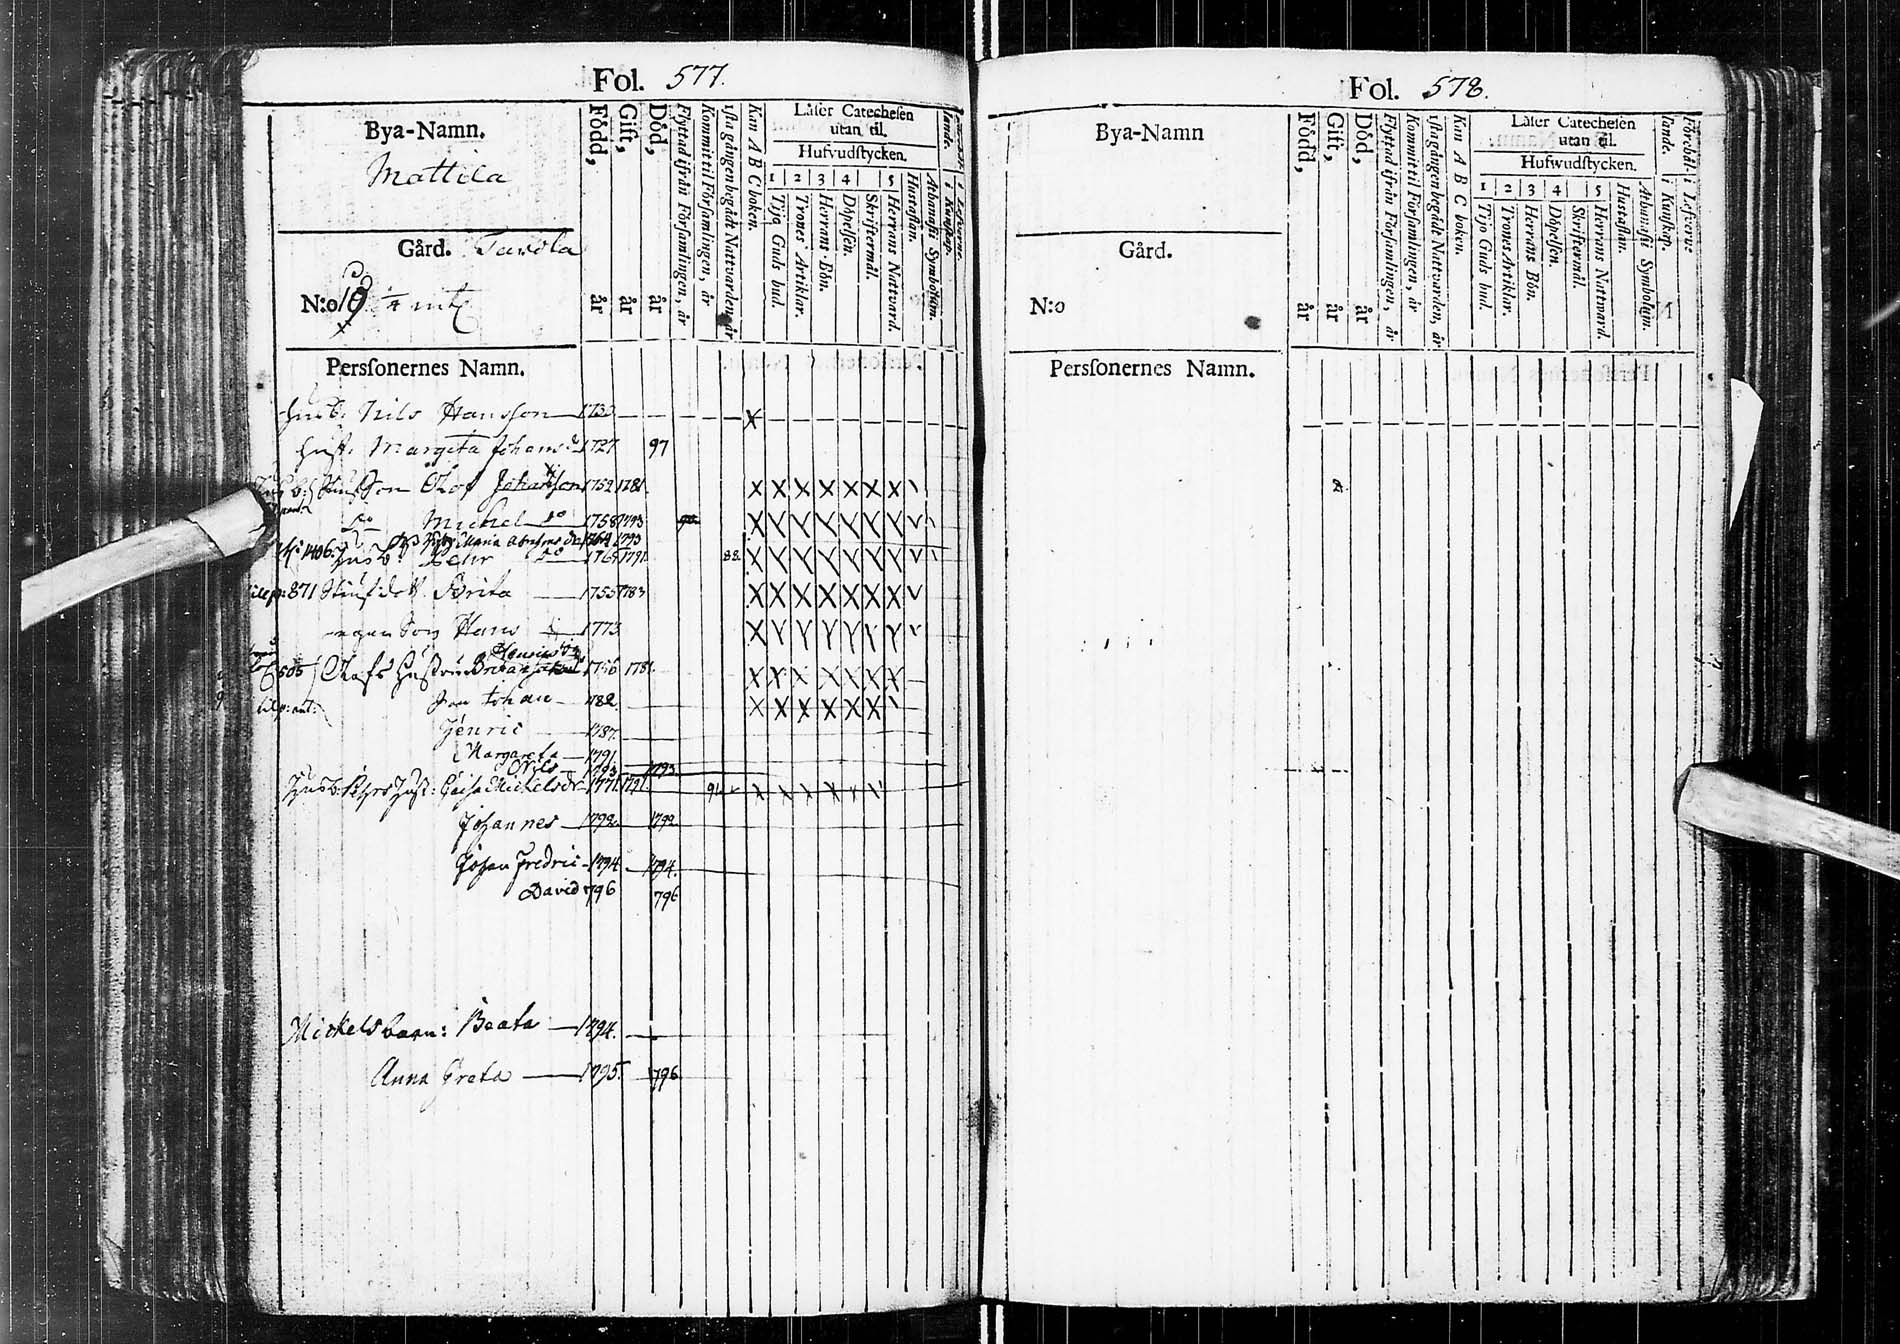 Fol. 577.
Bya-Namn.
Mattila
Gård. Tavola
N:o 19 1/4 mtl
Född, år
Gift, år
Död, år
Flyttad ifrån Församlingen, år
Kommit til Församlingen, år
1sta gången begådt Nattvarden, år
Kan A B C boken.
Låser Catechesen
utan til.
Hufvudstycken.
1 2 3 4 5
Tijo Guds bud.
Trones Artiklar.
Herrans Bön.
Döpelsen.
Skriftermål.
Herrans Nattvard.
Hustaflan.
Athanasii Symbolum.
i Kunskap.
i Lefverne.
Personernes Namn.
Husb: Nils Hansson 1730
Hust. Margeta Johansd 1727 97
Husb: Stiufson Olof Johansson 1752 1781
do Michel do 1758 1793
Hust Maria Abrahms do 1764 1793
1406 Husb: Pehr do 1765 1791 88
871 Stiufdott. Brita 1755 1783
egen Son Hans 1773
505 Olofs Hustru Brita 1756 1781
Son Johan 1782
Henric 1787
Margareta 1791
Nils 1793 1793
Husb: Pehrs Hust: Caisa Michelsdr 1771 1791 91
Johannes 1792 1792
Johan Fredric 1794 1794
David 796 796
Mickels barn: Beata 1794
Anna Greta 1795 796
Fol. 578.
Bya-Namn
Gård.
N:o
Född, år
Gift, år
Död, år
Flyttad ifrån Församlingen, år
Kommit til Församlingen, år
1sta gången begådt Nattvarden, år
Kan A B C boken.
Låser Catechesen
utan til.
Hufwudstycken.
1 2 3 4 5
Tijo Guds bud.
Trones Artiklar.
Herrans Bön.
Döpelsen.
Skriftermål.
Herrans Nattward.
Hustaflan.
Athanasii Symbolum.
i Kunskap.
Förehållande. i Lefverne
Personernes Namn.